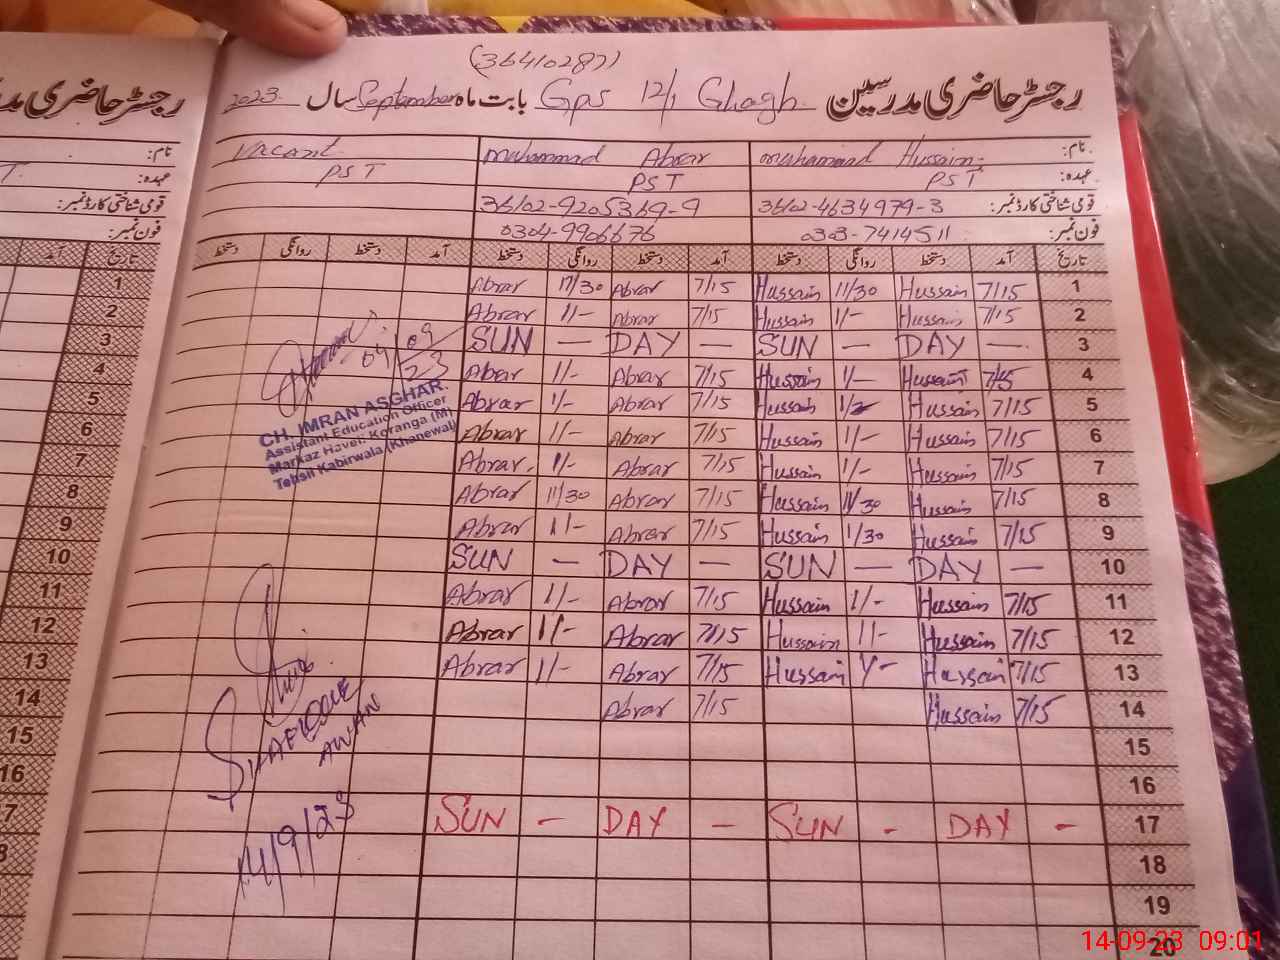 (36410287)
رجسٹر حاضری مدرسین Gps 12/1 Ghagh بابت ماہ September سال 2023
نام: Muhammad Hussain Muhammad Abrar Vacant
عہدہ: PST PST PST
قومی شناختی کارڈ نمبر: 36102-4634979-3 36102-9205369-9
فون نمبر: 0303-7414511 0304-9906676
تاریخ آمد دستخط روانگی دستخط آمد دستخط روانگی دستخط آمد دستخط روانگی دستخط
1 7/15 Hussain 11/30 Hussain 7/15 Abrar 11/30 Abrar
2 7/15 Hussain 1/- Hussain 7/15 Abrar 1/- Abrar
3 — DAY — SUN — DAY — SUN
4 7/15 Hussain 1/- Hussain 7/15 Abrar 1/- Abrar
5 7/15 Hussain Hussain 7/15 Abrar 1/- Abrar
6 7/15 Hussain 1/- Hussain 7/15 Abrar 1/- Abrar
7 7/15 Hussain 1/- Hussain 7/15 Abrar 1/- Abrar
8 7/15 Hussain 11/30 Hussain 7/15 Abrar 11/30 Abrar
9 7/15 Hussain 1/30 Hussain 7/15 Abrar 1/- Abrar
10 — DAY — SUN — DAY — SUN
11 7/15 Hussain 1/- Hussain 7/15 Abrar 1/- Abrar
12 7/15 Hussain 1/- Hussain 7/15 Abrar 1/- Abrar
13 7/15 Hussain Hussain 7/15 Abrar 1/- Abrar
14 7/15 Hussain 7/15 Abrar
15
16
17 - DAY - SUN - DAY - SUN
18
19
20
09/09/23
CH. IMRAN ASGHAR
Assistant Education Officer
Markaz Haveli Koranga (M)
Tehsil Kabirwala (Khanewal)
SHAFIQUE
AWAN
14/9/23
رجسٹر حاضری مدر
نام:
T. عہدہ:
قومی شناختی کارڈ نمبر:
فون نمبر:
تاریخ آمد
1
2
3
4
5
6
7
8
9
10
11
12
13
14
15
16
7
8
9
14-09-23 09:01